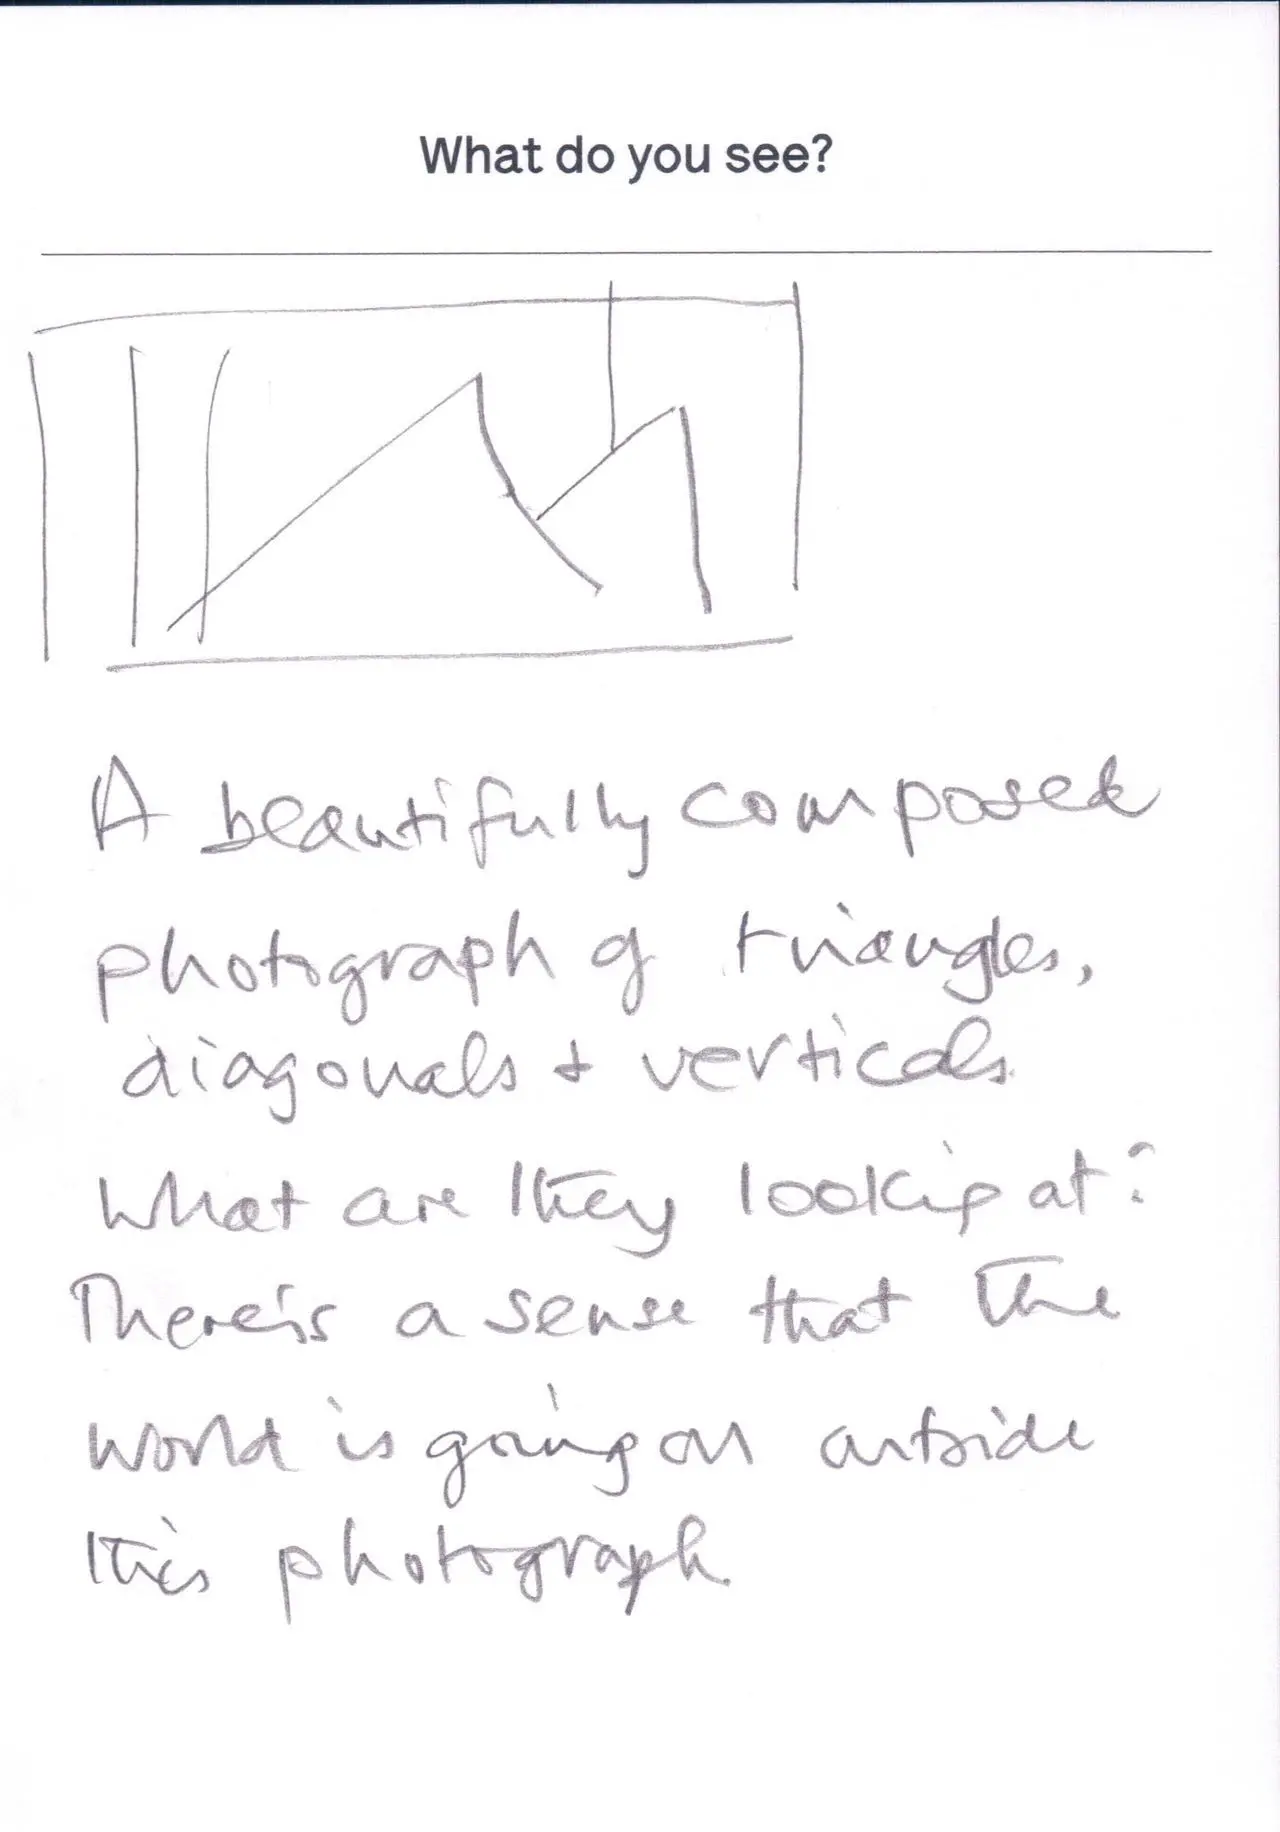 What do you see?
A beautifully composed
photograph of triangles,
diagonals + verticals.
What are they looking at?
There's a sense that the
world is going on outside
this photograph.